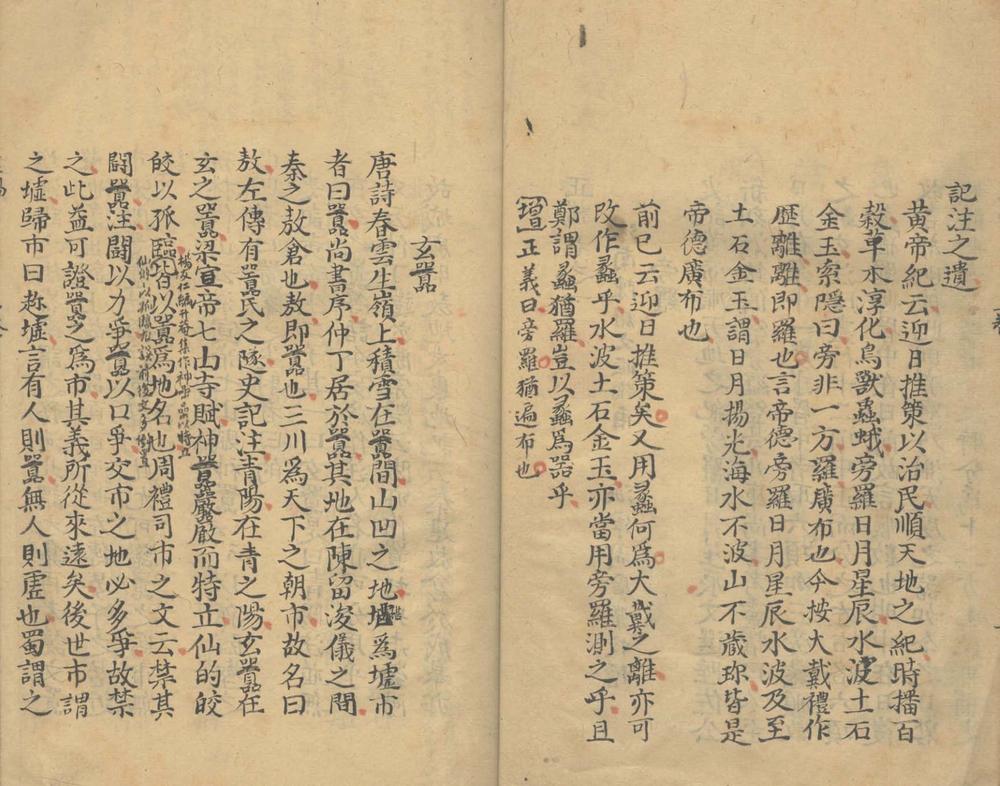 記注之遺
黄帝紀云迎日推策以治民順天地之紀時播百
穀草木淳化鳥獸蟲蛾旁羅日月星辰水波土石
金玉索隱曰旁非一方羅廣布也今按大戴禮作
歷離離即羅也言帝德旁羅日月星辰水波及至
土石金玉謂日月揚光海水不波山不藏珎皆是
帝德廣布也
前已云迎日推策矣又用蠡何爲大戴之離亦可
改作蠡乎水波土石金玉亦當用旁羅測之乎且
鄭謂蠡猶羅豈以蠡爲器乎
正義曰旁羅猶遍布也
玄囂
唐詩春雲生嶺上積雪在囂間山凹之地墟爲墟市
者曰囂尚書序仲丁居於囂其地在陳留浚儀之間
秦之敖倉也敖即囂也三川爲天下之朝市故名曰
敖左傳有囂氏之隧史記注青陽在青之陽玄囂在
玄之囂梁宣帝七山寺賦神囂嚴嚴而特立仙的皎
皎以孤臨皆以囂爲地名也周禮司市之文云禁其
鬪囂注鬪以力爭囂以口爭交市之地必多爭故禁
之此益可證囂之爲市其義所從來遠矣後世市謂
之墟歸市曰趂墟言有人則囂無人則虛也蜀謂之